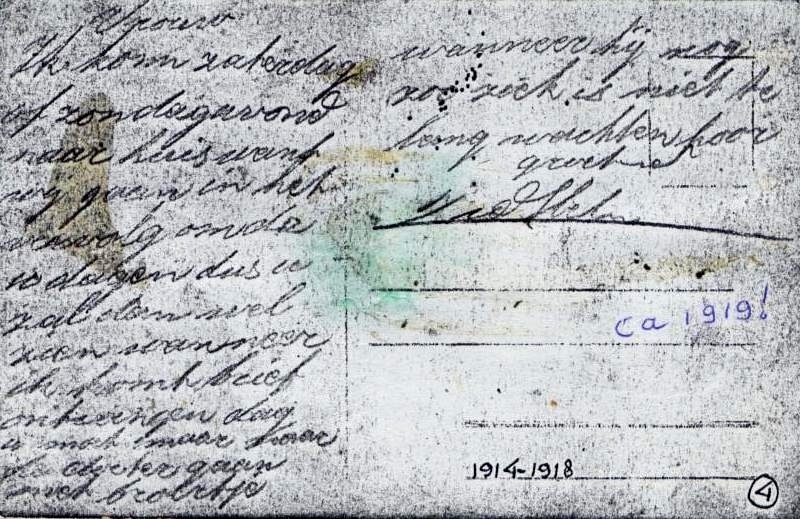 Vrouw
Ik kom zaterdag
of zondagavond
naar huis want
wy gaan in het
vervolg om de
10 dagen dus u
zal dan wel
zien wanneer
ik komt brief
ontvangen dag
u mot maar naar
de dokter gaan
met broertje
wanneer hij nog
zoo ziek is niet te
lang wachten hoor
groet
ca 1919!
1914-1918
4